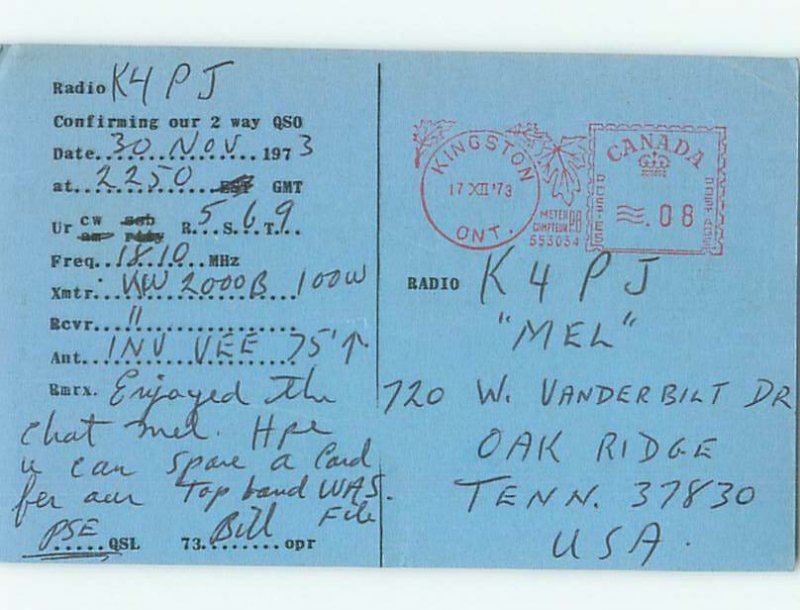 Radio K4PJ
Confirming our 2 way QSO
Date..30 NOV..1973
at..2250..EST GMT
Ur cw ssb R.5.S.6.T.9
am rtty
Freq..1810..MHz
Xmtr..KW 2000B..100W
Rcvr.."..
Ant..INV VEE 75'↑
Rmrx. Enjoyed the
chat Mel. Hpe
u can spare a card
fer our Top band WAS
File
PSE QSL 73..Bill..opr
KINGSTON
17 XII '73
ONT.
METER
COMPTEUR
553034
CANADA
POSTES
.08
POSTAGE
RADIO K4PJ
"MEL"
720 W. VANDERBILT DR
OAK RIDGE
TENN. 37830
USA.